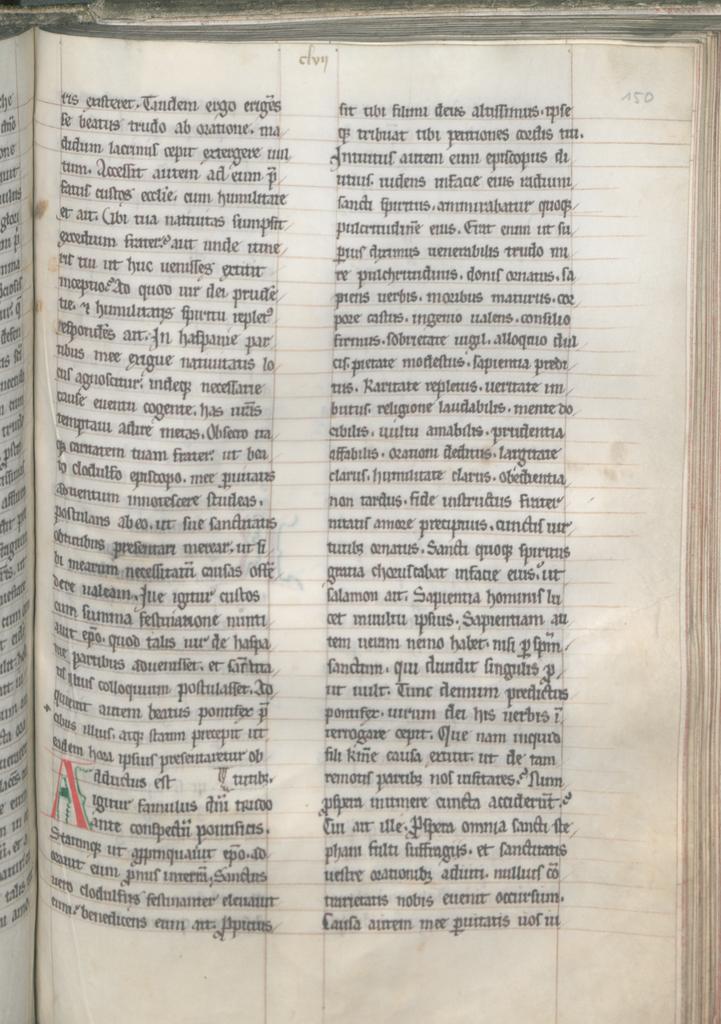 clvii
150
ris existeret. Tandem ergo erigẽs
se beatus trudo ab oratione. ma
didum lacrimis cepit extergere uul
tum. Accessit autem ad eum p̄
fatus custos ecclie. cum humilitate
et ait. Cibi tua natiuitas sumpsit
exordium frater. aut unde itine
ris tui ut huc uenisses extitit
inceptio. Ad quod uir dei prudẽ
tie. ⁊ humilitatis spiritu repletꝰ
respondẽs ait. In haspanie par
tibus mee exigue natiuitatis lo
cus agnoscitur. indeqꝫ necessarie
cause euentu cogente. has urãs
temptaui adire metas. Obsecro ita
qꝫ caritatem tuam frater. ut bea
to clodulfo episcopo. mee ꝑuitatis
aduentum innotescere studeas.
postulans ab eo. ut sue sanctitatis
obtutibus presentari merear. ut si
bi mearum necessitatū causas ostẽ
dere ualeam. Jue igitur custos
cum summa festinatione nunti
auit epō. quod talis uir de haspa
nie partibus aduenisset. et sanctita
tis illius colloquium postulasset. Ad
quieuit autem beatus pontifex p̄
cibus illius. atqꝫ statim precepit ut
eadem hora ipsius presentaretur ob
Adductus est ¶ tutibꝫ.
igitur famulus dñi trudo
ante conspectū pontificis.
Statimqꝫ ut appinquauit epō. ad
orauit eum pronus interrā. Sanctus
uero clodulfus festinanter eleuauit
eum. benedicens eum ait. Propicius
sit tibi filimi deus altissimus. ipse
qꝫ tribuat tibi petitiones cordis tui.
Intuitus autem eum episcopus di
uinus. uidens infacie eius radium
sancti spiritus. ammirabatur quoqꝫ
pulcritudinẽ eius. Erat enim ut su
ꝑius diximus uenerabilis trudo mi
re pulchritudinis. donis ornatus. sa
piens uerbis. moribus maturus. cor
pore castus. ingenio ualens. consilio
firmus. sobrietate uigil. alloquio dul
cis. pietate modestus. sapientia predi
tus. Karitate repletus. ueritate im
butus. religione laudabilis. mente do
cibilis. uultu amabilis. prudentia
affabilis. orationi deditus. largitate
clarus. humilitate clarus. obediẽntia
non tardus. fide instructus frater
nitatis amore precipuus. cunctis uir
tutibꝫ ornatus. Sancti quoqꝫ spiritus
gratia choruscabat infacie eius. ut
salamon ait. Sapientia hominis lu
cet inuultu ipsius. Sapientiam au
tem ueram nemo habet. nisi ꝑ spm̄
sanctum. qui diuidit singulis ꝓ
ut uult. Tunc demum predictus
pontifex. uirum dei his uerbis ī
terrogare cepit. Que nam inquid
fili kmẽ causa extitit. ut de tam
remotis partibꝫ nos uisitares. Num
ꝓspera itinere cuncta acciderūt.
Cui ait ille. ꝓspera omnia sancti ste
phani fulti suffragiis. et sanctitatis
uestre orationibꝫ adiuti. nullius cō
trarietatis nobis euenit occursum.
Causa autem mee ꝑuitatis uos in